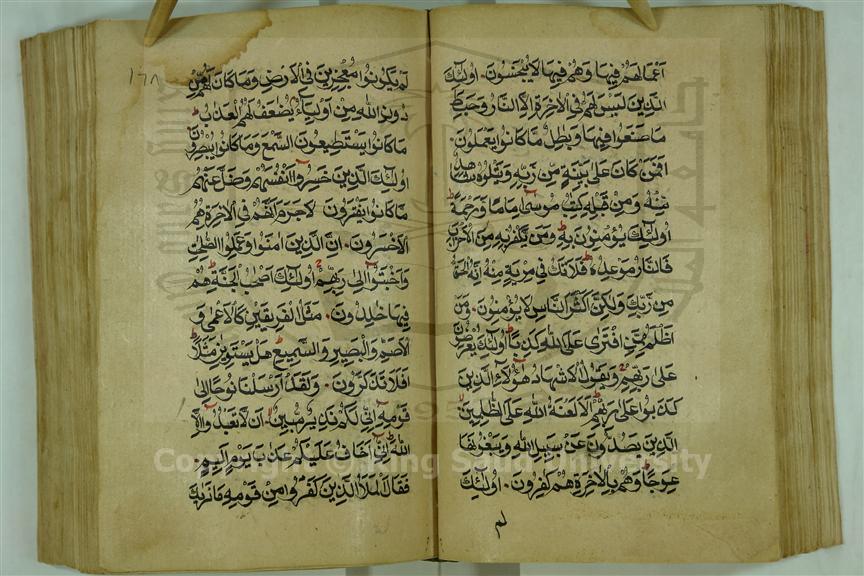 اَعْمَالَهُمْ فِيهَا وَهُمْ فِيهَا لَا يُبْخَسُونَ اولٰئِكَ
الَّذِينَ لَيْسَ لَهُمْ فِي الْاٰخِرَةِ اِلَّا النَّارُ وَحَبِطَ
مَا صَنَعُوا فِيهَا وَبٰطِلٌ مَّا كَانُوا يَعْمَلُونَ
اَفَمَنْ كَانَ عَلٰى بَيِّنَةٍ مِّنْ رَّبِّهٖ وَيَتْلُوهُ شَاهِدٌ
مِّنْهُ وَمِنْ قَبْلِهٖ كِتٰبُ مُوسٰى اِمَامًا وَّرَحْمَةً ط
اُولٰئِكَ يُؤْمِنُونَ بِهٖ ط وَمَنْ يَّكْفُرْ بِهٖ مِنَ الْاَحْزَابِ
فَالنَّارُ مَوْعِدُهٗ فَلَا تَكُ فِي مِرْيَةٍ مِّنْهُ اِنَّهُ الْحَقُّ
مِنْ رَّبِّكَ وَلٰكِنَّ اَكْثَرَ النَّاسِ لَا يُؤْمِنُونَ وَمَنْ
اَظْلَمُ مِمَّنِ افْتَرٰى عَلَى اللّٰهِ كَذِبًا ط اُولٰئِكَ يُعْرَضُونَ
عَلٰى رَبِّهِمْ وَيَقُولُ الْاَشْهَادُ هٰؤُلَاءِ الَّذِينَ
كَذَبُوا عَلٰى رَبِّهِمْ اَلَا لَعْنَةُ اللّٰهِ عَلَى الظّٰلِمِينَ
الَّذِينَ يَصُدُّونَ عَنْ سَبِيلِ اللّٰهِ وَيَبْغُونَهَا
عِوَجًا ط وَهُمْ بِالْاٰخِرَةِ هُمْ كٰفِرُونَ اُولٰئِكَ
لم
١٦٨
لَمْ يَكُونُوا مُعْجِزِينَ فِي الْاَرْضِ وَمَا كَانَ لَهُمْ مِّنْ
دُونِ اللّٰهِ مِنْ اَوْلِيَاءَ يُضٰعَفُ لَهُمُ الْعَذَابُ ط
مَا كَانُوا يَسْتَطِيعُونَ السَّمْعَ وَمَا كَانُوا يُبْصِرُونَ
اُولٰئِكَ الَّذِينَ خَسِرُوا اَنْفُسَهُمْ وَضَلَّ عَنْهُمْ
مَّا كَانُوا يَفْتَرُونَ لَا جَرَمَ اَنَّهُمْ فِي الْاٰخِرَةِ هُمُ
الْاَخْسَرُونَ اِنَّ الَّذِينَ اٰمَنُوا وَعَمِلُوا الصّٰلِحٰتِ
وَاَخْبَتُوا اِلٰى رَبِّهِمْ اُولٰئِكَ اَصْحٰبُ الْجَنَّةِ ط هُمْ
فِيهَا خٰلِدُونَ مَثَلُ الْفَرِيقَيْنِ كَالْاَعْمٰى وَ
الْاَصَمِّ وَالْبَصِيرِ وَالسَّمِيعِ ط هَلْ يَسْتَوِيٰنِ مَثَلًا ط
اَفَلَا تَذَكَّرُونَ وَلَقَدْ اَرْسَلْنَا نُوحًا اِلٰى
قَوْمِهٖ اِنِّي لَكُمْ نَذِيرٌ مُّبِينٌ اَنْ لَّا تَعْبُدُوا اِلَّا
اللّٰهَ ط اِنِّي اَخَافُ عَلَيْكُمْ عَذَابَ يَوْمٍ اَلِيمٍ
فَقَالَ الْمَلَأُ الَّذِينَ كَفَرُوا مِنْ قَوْمِهٖ مَا نَرٰىكَ
Copyright © King Saud University